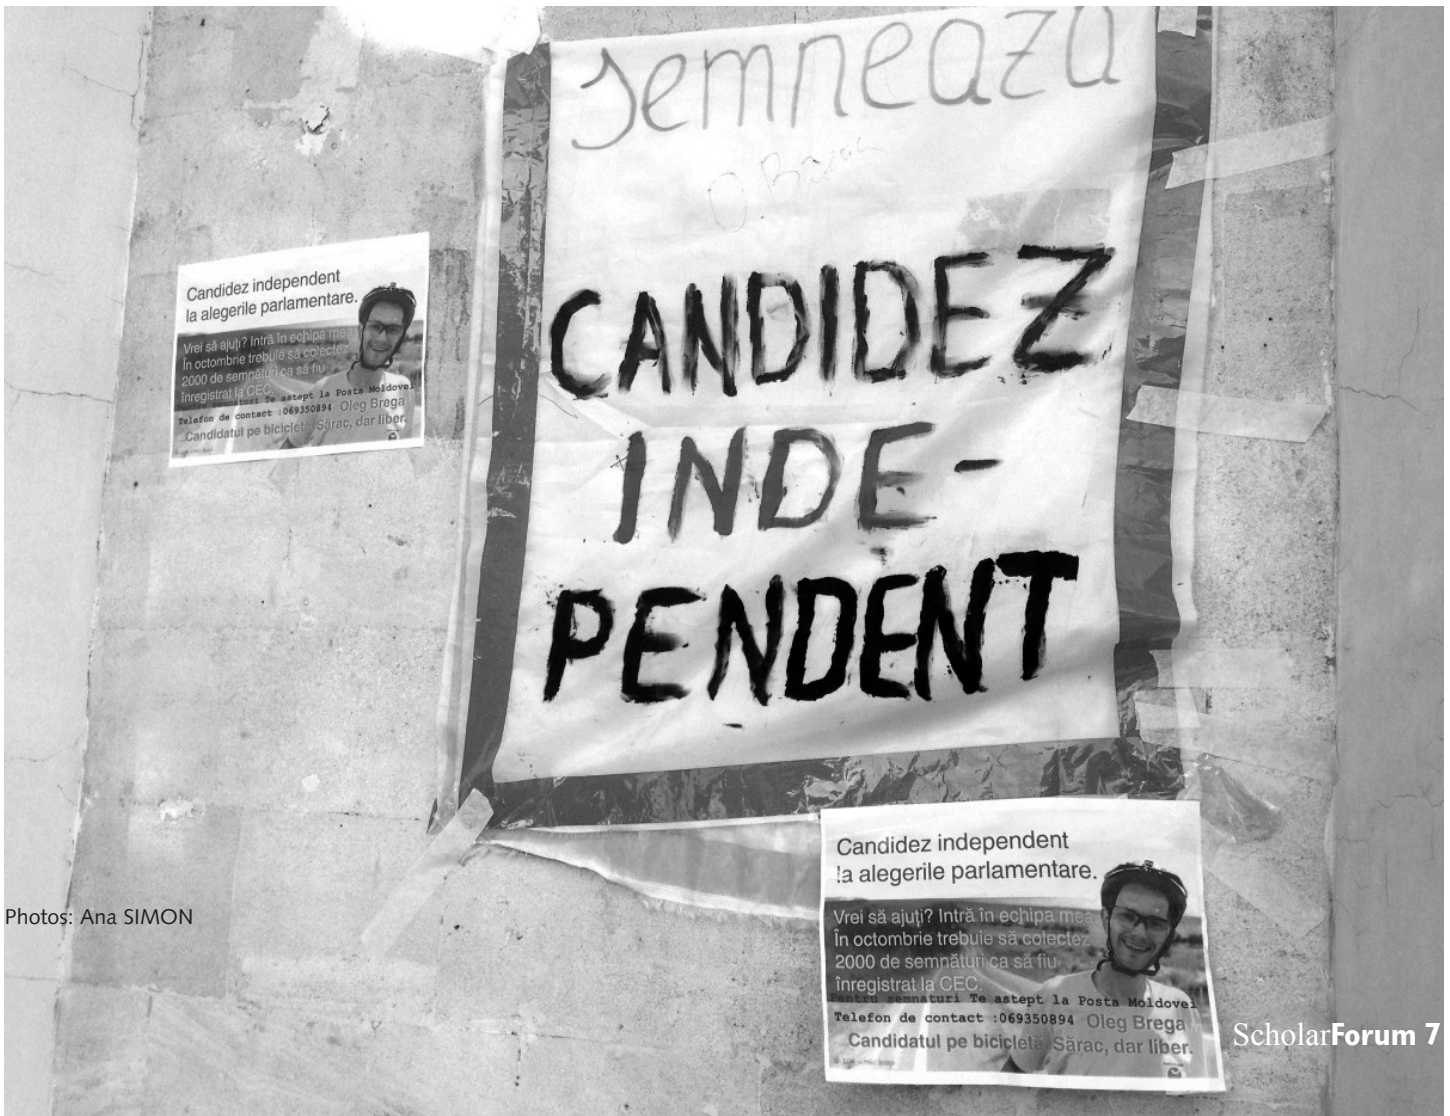 semneaza
CANDIDEZ
INDE-
PENDENT
Candidez independent
la alegerile parlamentare.
Vrei să ajuți? Intră în echipa mea
În octombrie trebuie să colectez
2000 de semnături ca să fiu
înregistrat la CEC.
semnaturi Te astept la Posta Moldovei
Telefon de contact :069350894 Oleg Brega
Candidatul pe bicicletă Sărac, dar liber.
Candidez independent
la alegerile parlamentare.
Vrei să ajuți? Intră în echipa mea
În octombrie trebuie să colectez
2000 de semnături ca să fiu
înregistrat la CEC.
Pentru semnaturi Te astept la Posta Moldovei
Telefon de contact :069350894 Oleg Brega
Candidatul pe bicicletă Sărac, dar liber.
Photos: Ana SIMON
ScholarForum 7